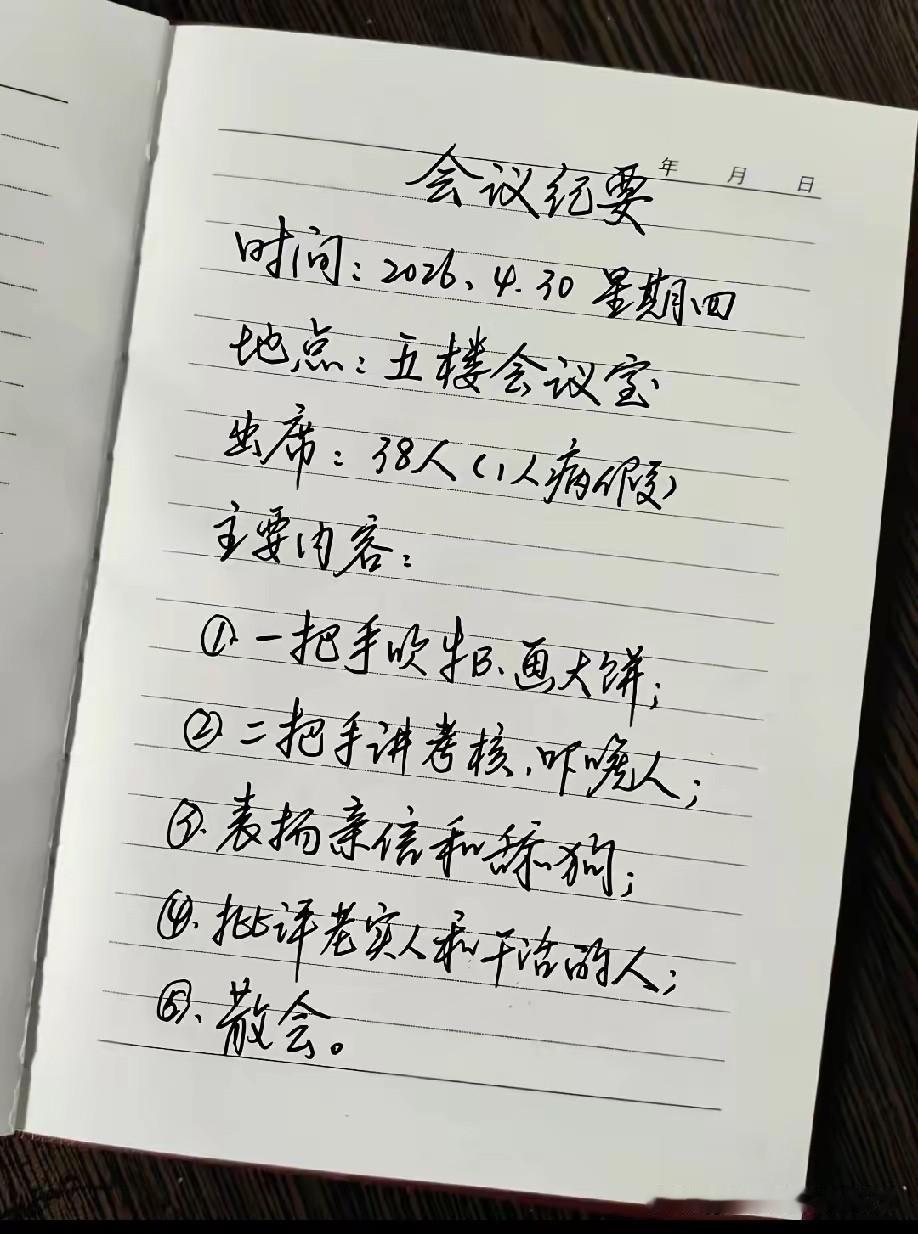 年 月 日
会议纪要
时间：2026、4.30 星期四
地点：五楼会议室
出席：38人（1人病假）
主要内容：
①.一把手吹牛B、画大饼；
②二把手讲考核、吓唬人；
③.表扬亲信和舔狗；
④.批评老实人和干活的人；
⑤、散会。